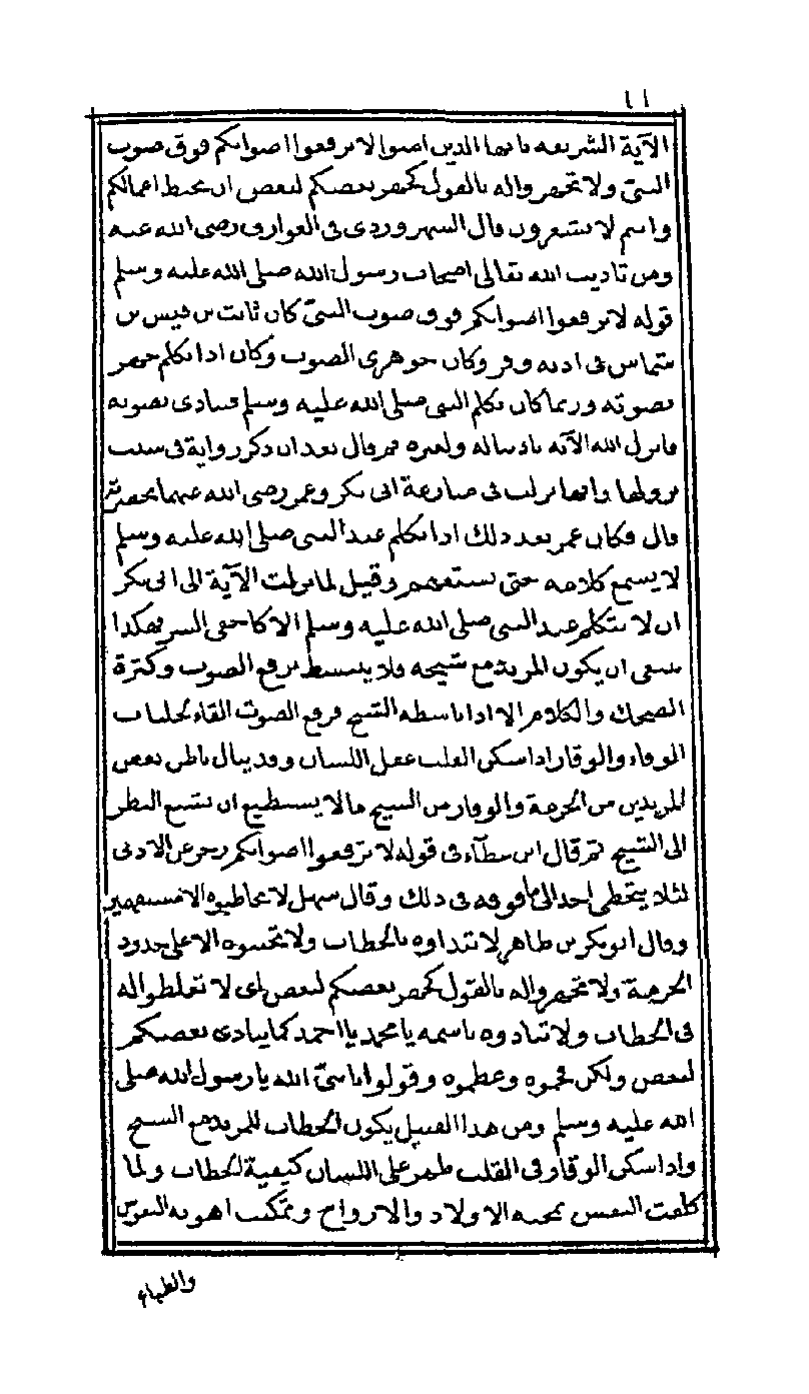 ١١
الآية الشريفة يا ايها الذين امنوا لا ترفعوا اصواتكم فوق صوت
النبيّ ولا تجهروا له بالقول كجهر بعضكم لبعض ان تحبط اعمالكم
وانتم لا تشعرون قال السهروردى فى العوارف رضى الله عنه
ومن تاديب الله تعالى اصحاب رسول الله صلى الله عليه وسلم
قوله لا ترفعوا اصواتكم فوق صوت النبيّ كان ثابت بن قيس بن
شماس فى اذنه وقر وكان جوهرى الصوت وكان اذا تكلم جهر
بصوته وربما كان تكلم النبى صلى الله عليه وسلم فينادى بصوته
فانزل الله الآية تاديبا له ولغيره ثم قال بعد ان ذكر رواية فى سبب
نزولها وانها نزلت فى منازعة ابى بكر وعمر رضى الله عنهما بحضرته
قال فكان عمر بعد ذلك اذا تكلم عند النبى صلى الله عليه وسلم
لا يسمع كلامه حتى يستفهم وقيل لما نزلت الآية الى ابى بكر
ان لا يتكلم عند النبى صلى الله عليه وسلم الا كاخى السر فهكذا
ينبغى ان يكون المريد مع شيخه فلا ينبسط برفع الصوت وكثرة
الضحك والكلام الا اذا باسطه الشيخ فرفع الصوت القاء جلباب
الوقار والوقار اذا سكن القلب عقل اللسان وقد ينال باطن بعض
المريدين من الحرمة والوقار من الشيخ ما لا يستطيع ان يشبع النظر
الى الشيخ ثم قال ابن عطآء فى قوله لا ترفعوا اصواتكم زجر عن الادنى
لئلا يتخطى احد الى ما فوقه فى ذلك وقال سهل لا تخاطبوه الا مستفهمين
وقال ابو بكر بن طاهر لا تبدأوه بالخطاب ولا تجيبوه الا على حدود
الحرمة ولا تجهروا له بالقول كجهر بعضكم لبعض اى لا تغلظوا له
فى الخطاب ولا تنادوه باسمه يا محمد يا احمد كما ينادى بعضكم
لبعض ولكن فخموه وعظموه وقولوا يا نبىّ الله يا رسول الله صلى
الله عليه وسلم ومن هذا القبيل يكون الخطاب للمريد مع الشيخ
واذا سكن الوقار فى القلب ظهر على اللسان كيفية الخطاب ولما
كلفت النفس بمحبة الاولاد والازواج وتمكنت اهوية النفوس
والطباع